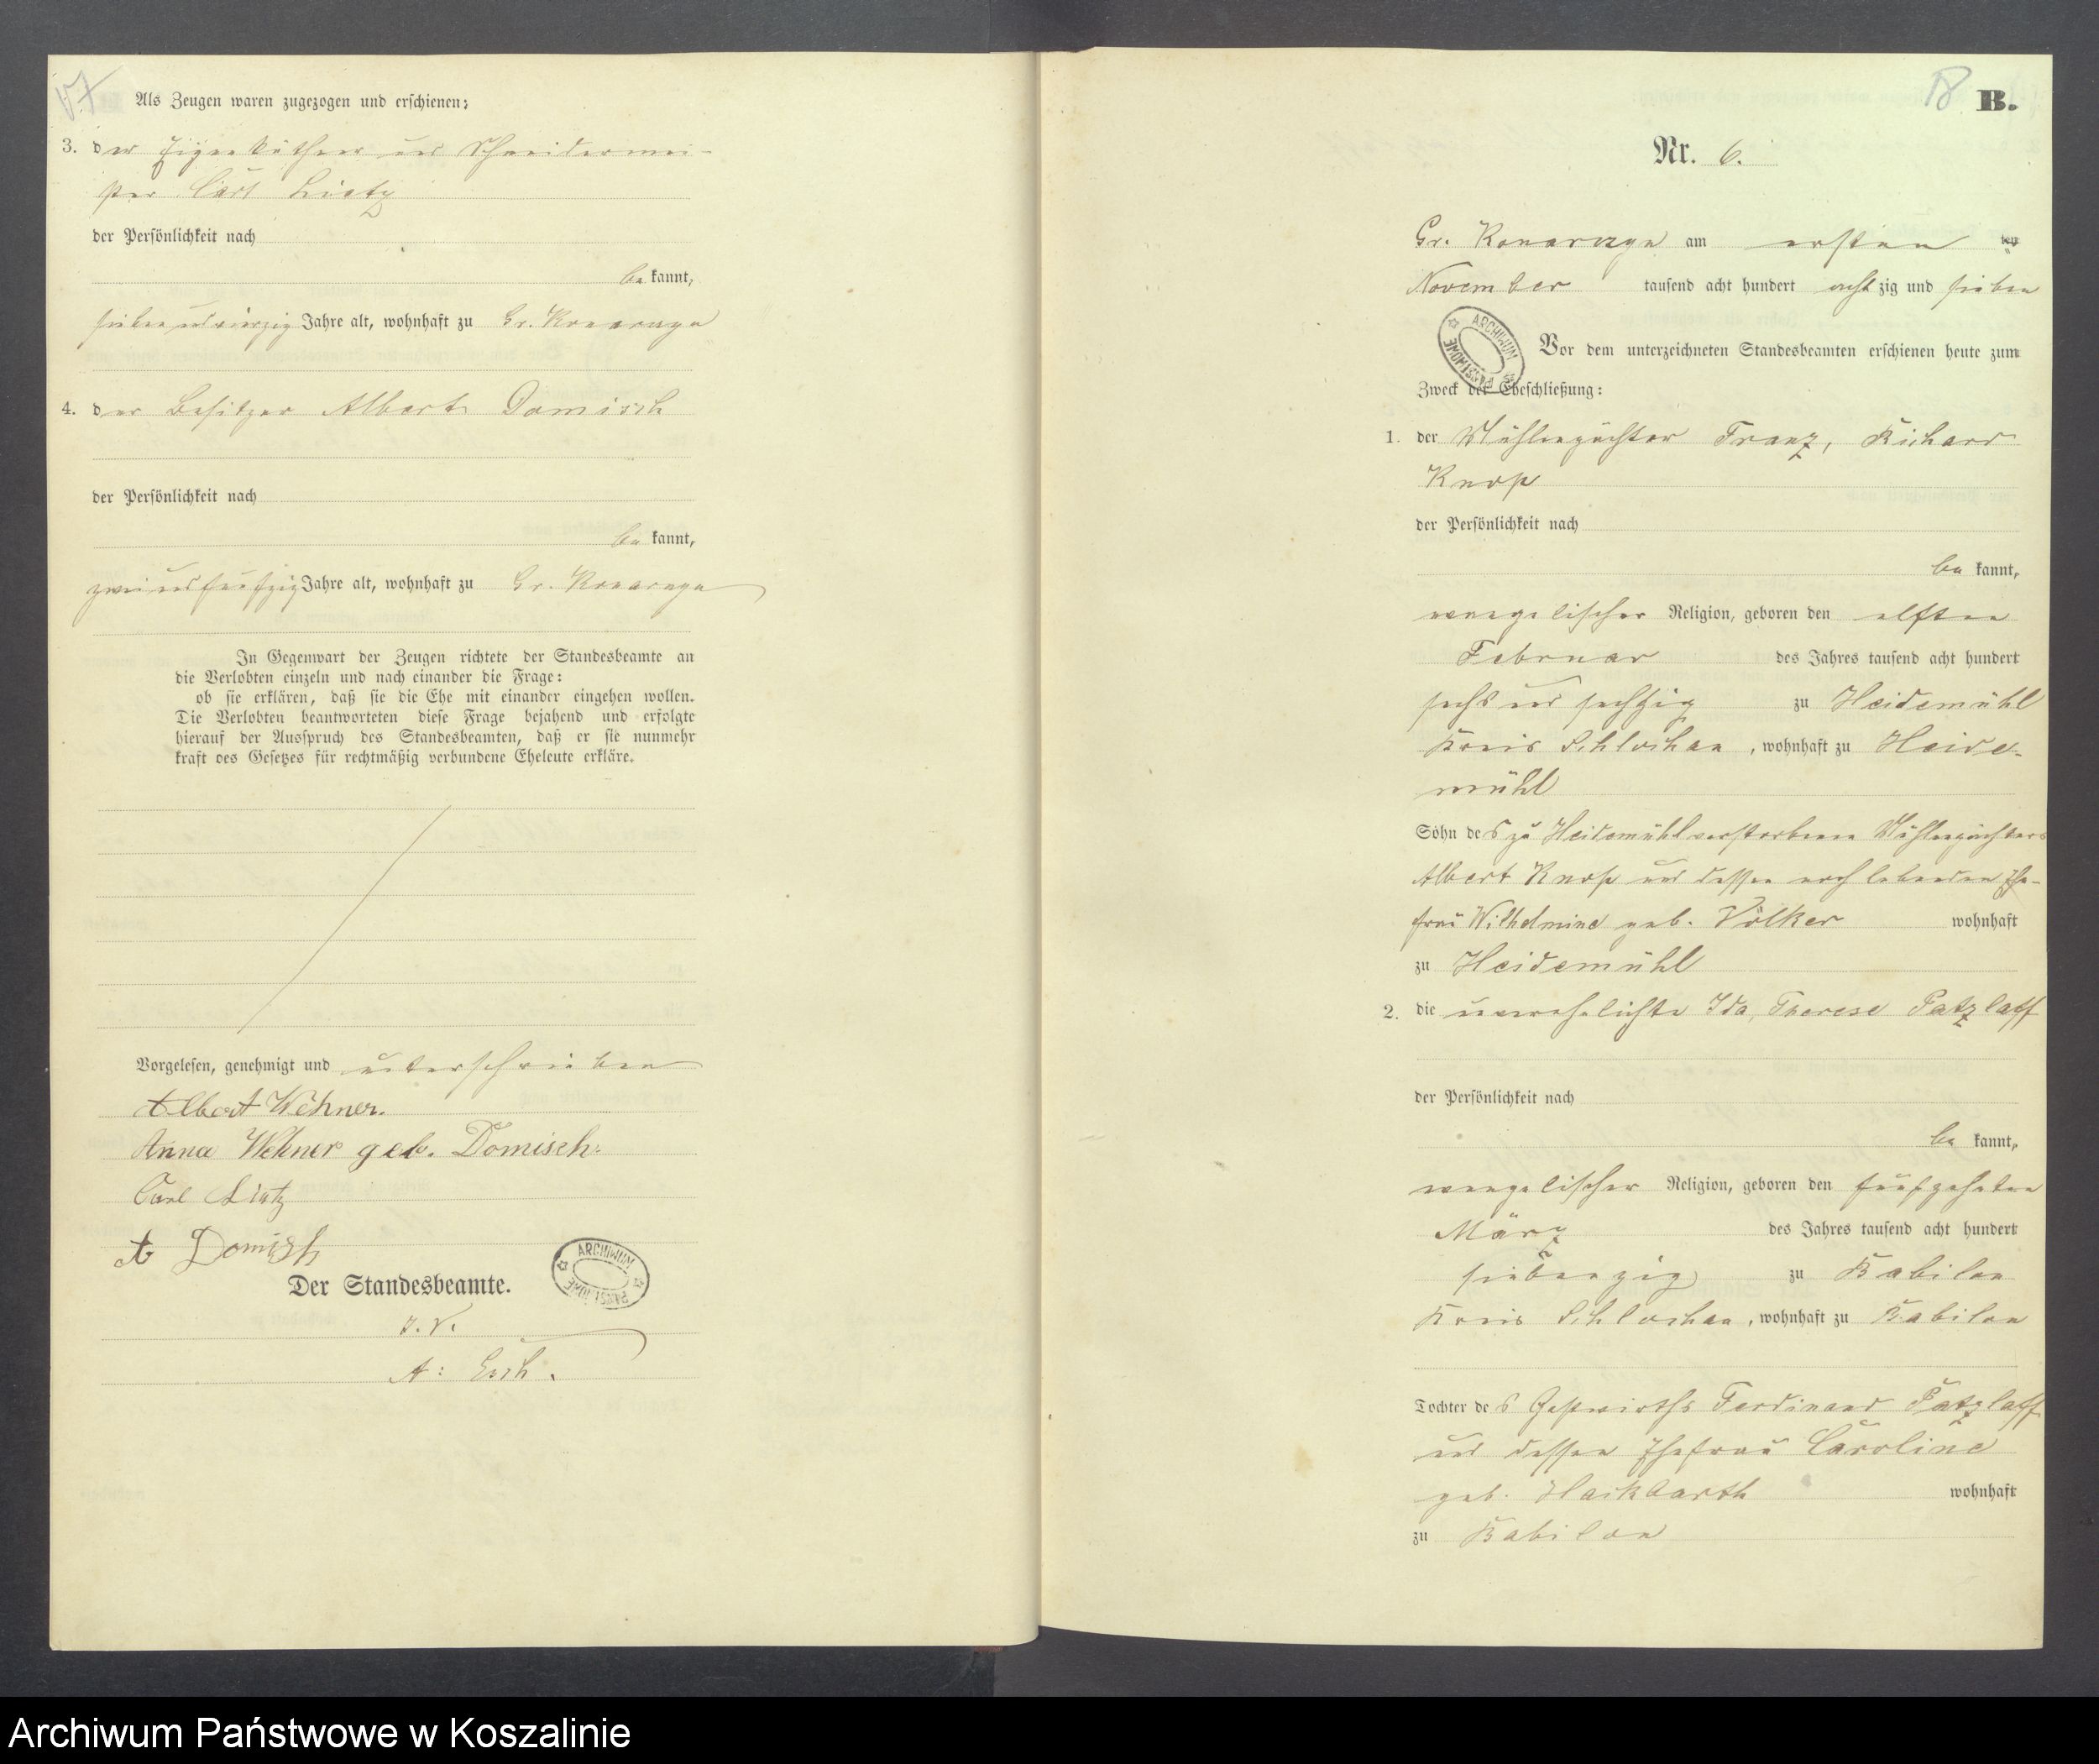 17
Als Zeugen waren zugezogen und erschienen:
3. der Eigenkäthner und Schneidermei-
ster Carl Lietz
der Persönlichkeit nach
be kannt,
sieben und vierzig Jahre alt, wohnhaft zu Gr. Konarczyn
4. der Besitzer Albert Domisch
der Persönlichkeit nach
be kannt,
zwei und fünfzig Jahre alt, wohnhaft zu Gr. Konarczyn
In Gegenwart der Zeugen richtete der Standesbeamte an
die Verlobten einzeln und nach einander die Frage:
ob sie erklären, daß sie die Ehe mit einander eingehen wollen.
Die Verlobten beantworteten diese Frage bejahend und erfolgte
hierauf der Ausspruch des Standesbeamten, daß er sie nunmehr
kraft des Gesetzes für rechtmäßig verbundene Eheleute erkläre.
Vorgelesen, genehmigt und unterschrieben
Albert Wehner.
Anna Wehner geb. Domisch.
Carl Lietz
A Domisch
Der Standesbeamte.
ARCHIWUM PAŃSTWOWE
I. V.
A:
18 B.
Nr. 6.
Gr. Konarczyn am ersten ten
November tausend acht hundert acht zig und sieben
ARCHIWUM PAŃSTWOWE
Vor dem unterzeichneten Standesbeamten erschienen heute zum
Zweck der Eheschließung:
1. der Mühlenpächter Franz, Richard
Knop
der Persönlichkeit nach
be kannt,
evangelischer Religion, geboren den elften
Februar des Jahres tausend acht hundert
sechs und sechzig zu Heidemühl
Kreis Schlochau, wohnhaft zu Heide-
mühl
Sohn des zu Heidemühl verstorbenen Mühlenpächters
Albert Knop und dessen noch lebenden Ehe-
frau Wilhelmine geb. Völker wohnhaft
zu Heidemühl
2. die unverehelichte Ida, Therese Patzlaff
der Persönlichkeit nach
be kannt,
evangelischer Religion, geboren den fünfzehnten
März des Jahres tausend acht hundert
siebenzig zu Babilon
Kreis Schlochau, wohnhaft zu Babilon
Tochter des Gastwirths Ferdinand Patzlaff
und dessen Ehefrau Caroline
geb. Hackbarth wohnhaft
zu Babilon
Archiwum Państwowe w Koszalinie